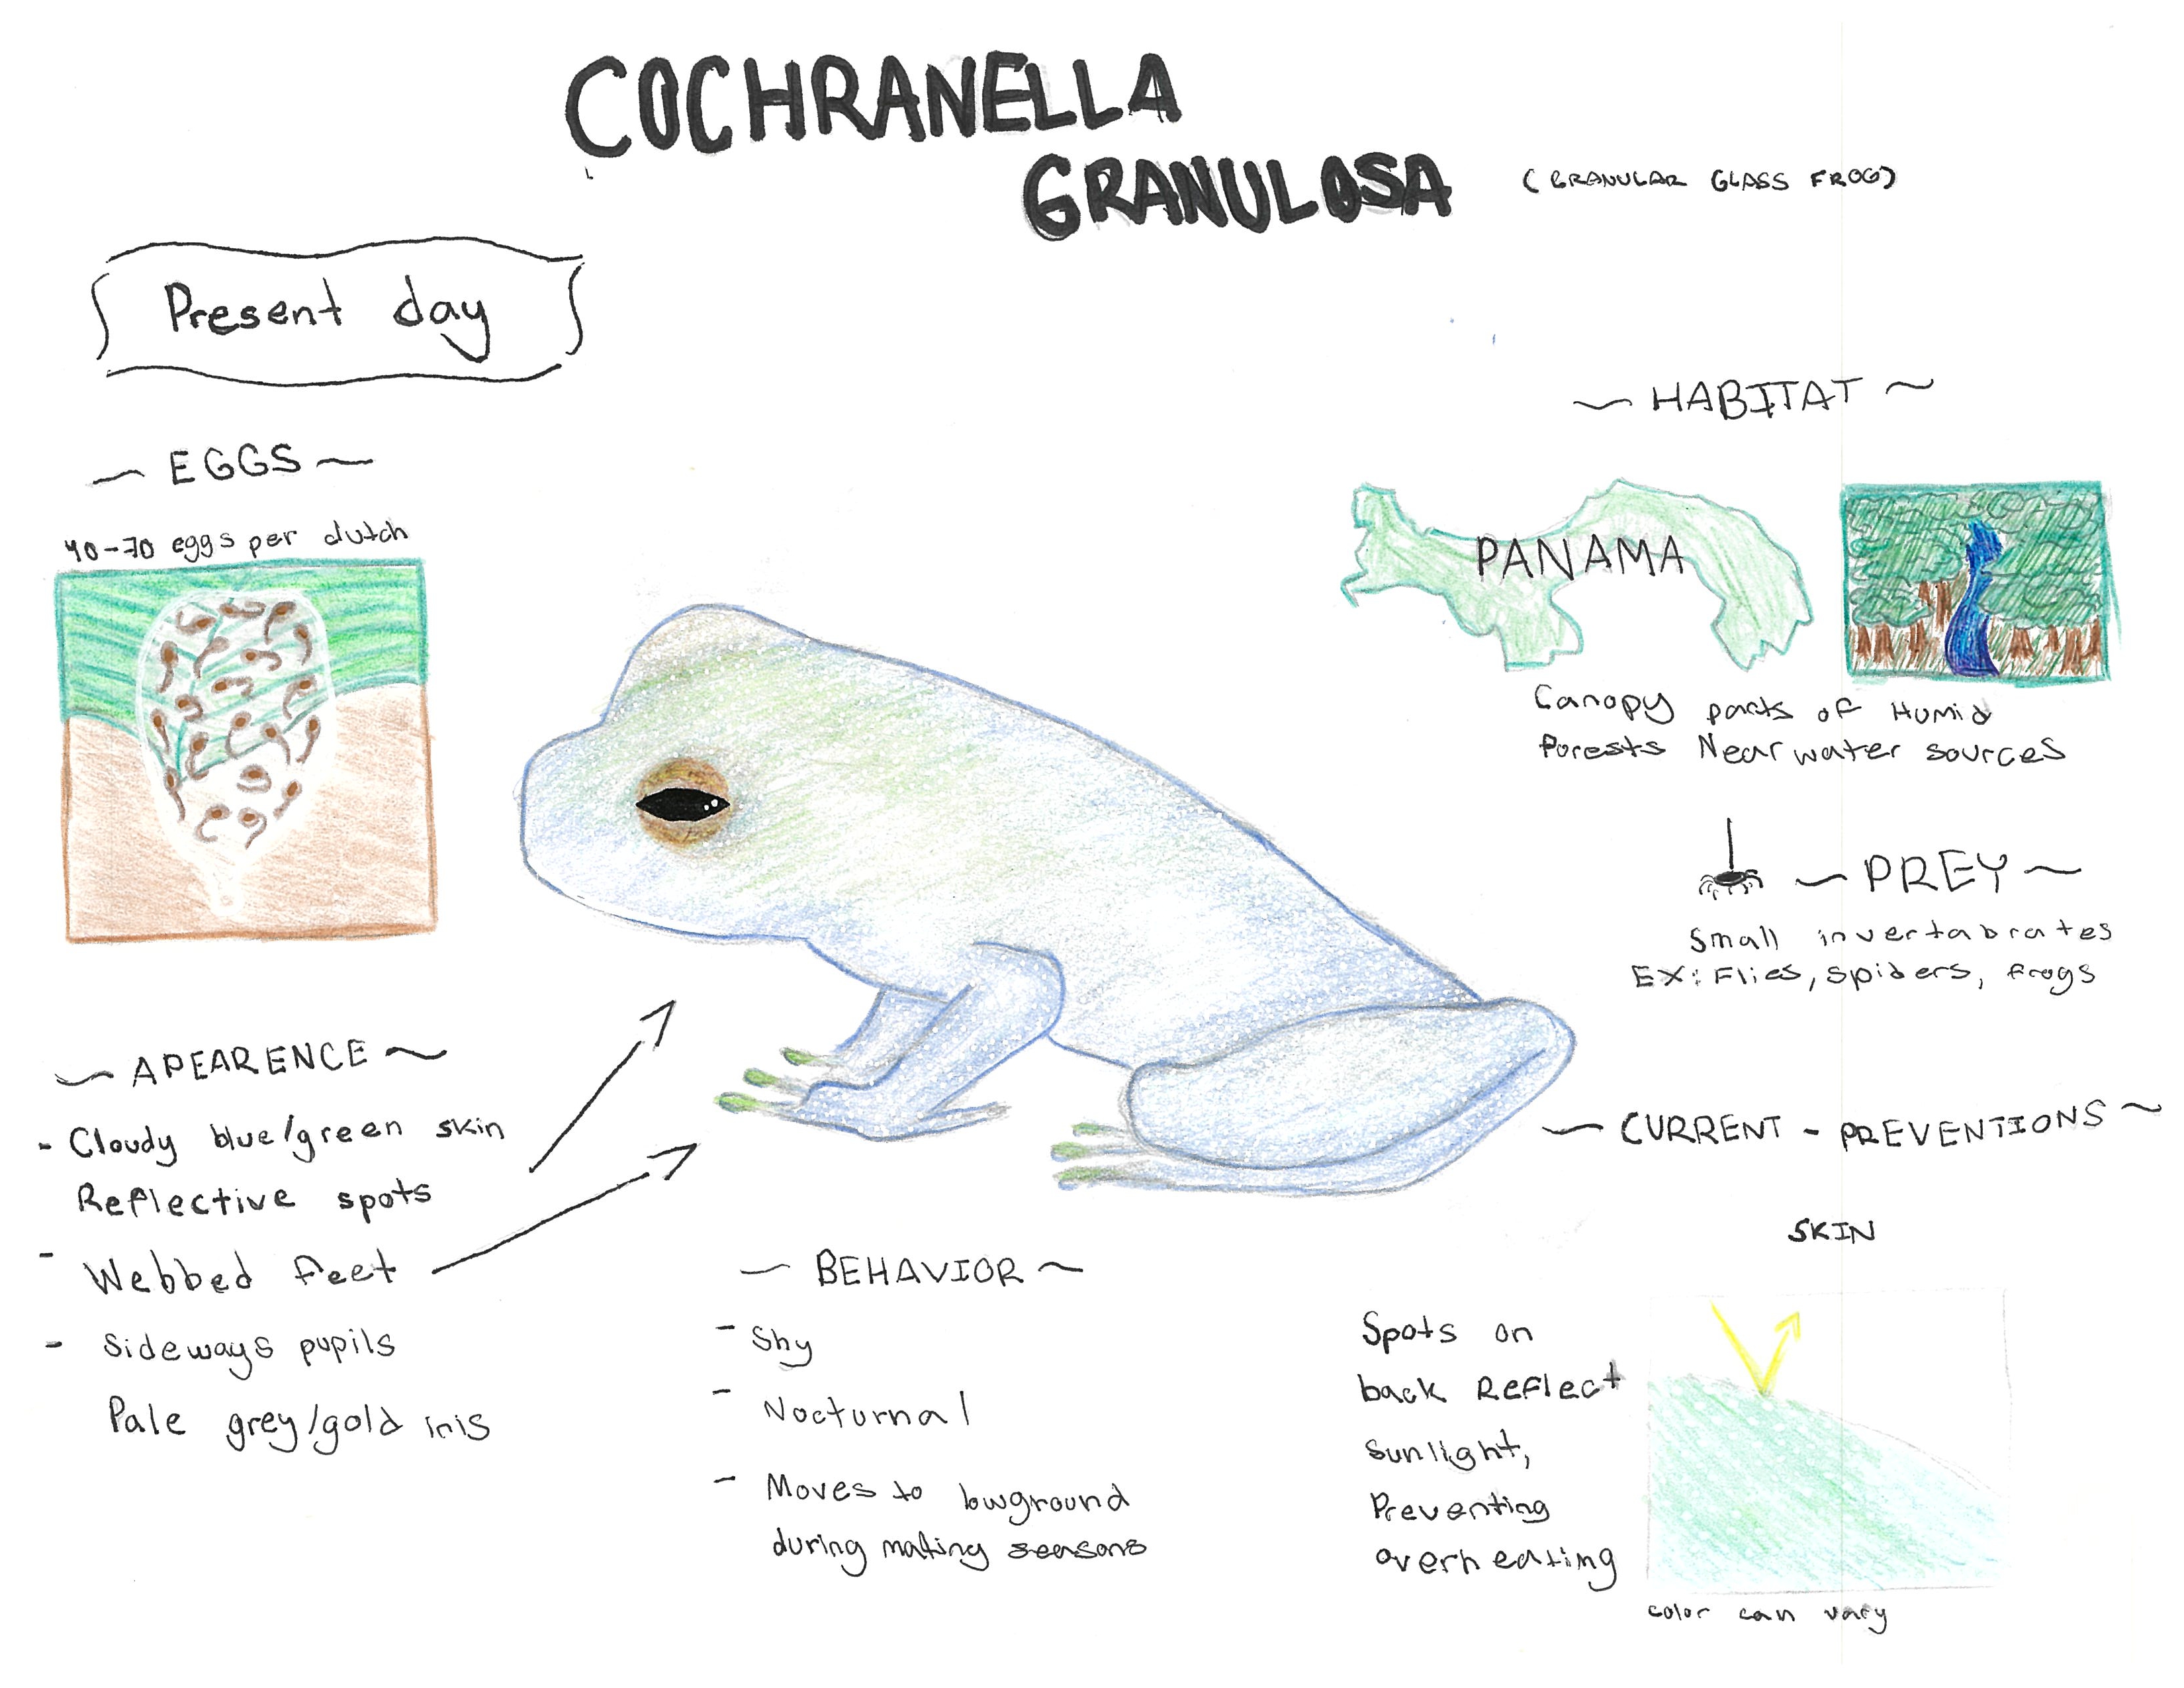 COCHRANELLA
GRANULOSA
(GRANULAR GLASS FROG)
Present day
~ EGGS ~
40-70 eggs per clutch
~ APEARENCE ~
- Cloudy blue/green skin
Reflective spots
- Webbed feet
- Sideways pupils
Pale grey/gold iris
~ BEHAVIOR ~
- Shy
- Nocturnal
- Moves to lowground
during mating seasons
~ HABITAT ~
PANAMA
Canopy parts of Humid
Forests Near water sources
~ PREY ~
Small invertabrates
EX: Flies, spiders, frogs
~ CURRENT - PREVENTIONS ~
SKIN
Spots on
back Reflect
sunlight,
Preventing
overheating
color can vary